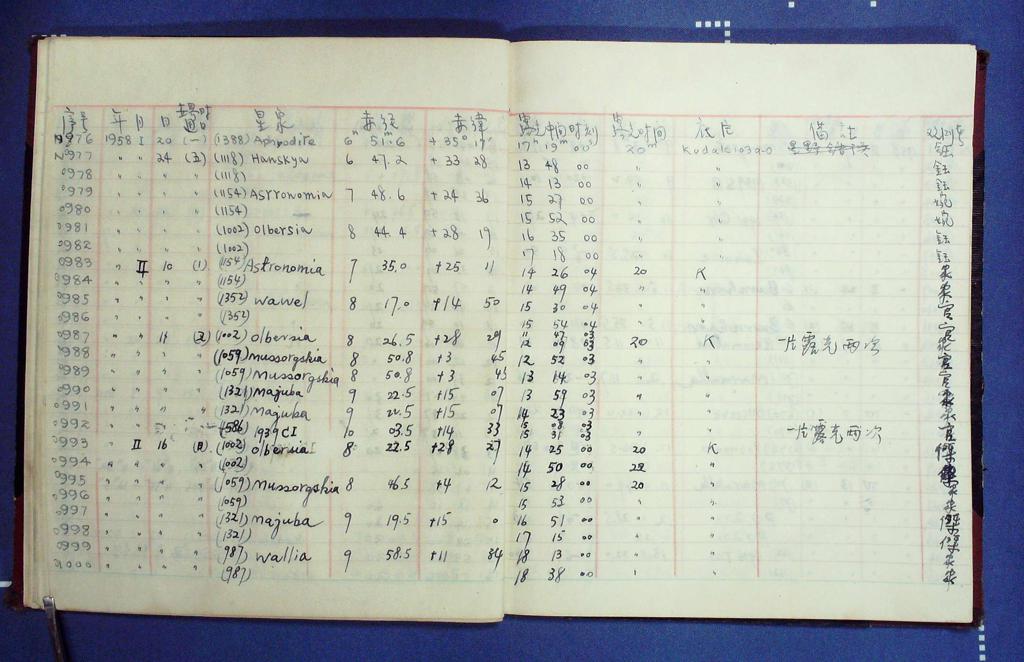 序号 年 月 日 星象 赤经 赤緯 露光中间时刻 露光时间 底片 备註
N0976 1958 I 20 (一) (1388) Aphrodite 6h 51.6m +35° 17' 17h 19m 00s 20m Kodak103a-0
N0977 " " 24 (五) (1118) Hanskya 6 47.2 +33 28 13 48 00 " "
0978 " " " " (1118) 14 13 00 " "
0979 " " " " (1154) Astronomia 7 48.6 +24 36 15 27 00 " "
0980 " " " " (1154) 15 52 00 " "
0981 " " " " (1002) Olbersia 8 44.4 +28 19 16 35 00 " "
0982 " " " " (1002) 17 18 00 " "
0983 " II 10 (1) (1154) Astronomia 7 35.0 +25 11 14 26 04 20 K
0984 " " " " (1154) 14 49 04 " "
0985 " " " " (1352) Wawel 8 17.0 +14 50 15 30 04 " "
0986 " " " " (1352) 15 54 04 " "
0987 " " 11 (2) (1002) Olbersia 8 26.5 +28 29 12 09 03 20 K 一片露光两次
0988 " " " " (1059) Mussorgskia 8 50.8 +3 45 12 52 03 " "
0989 " " " " (1059) Mussorgskia 8 50.8 +3 45 13 14 03 " "
0990 " " " " (1321) Majuba 9 22.5 +15 07 13 59 03 " "
0991 " " " " (1321) Majuba 9 22.5 +15 07 14 23 03 " "
0992 " " " " (4586) 1939CI 10 03.5 +14 33 15 08 03 15 31 03 " " 一片露光两次
0993 " II 16 (日) (1002) Olbersia 8 22.5 +28 27 14 25 00 20 K
0994 " " " " (1002) 14 50 00 22 "
0995 " " " " (1059) Mussorgskia 8 46.5 +4 12 15 28 00 20 "
0996 " " " " (1059) 15 53 00 " "
0997 " " " " (1321) Majuba 9 19.5 +15 0 16 51 00 " "
0998 " " " " (1321) 17 15 00 " "
0999 " " " " (987) Wallia 9 58.5 +11 84 18 13 00 " "
1000 " " " " (987) 18 38 00 " "